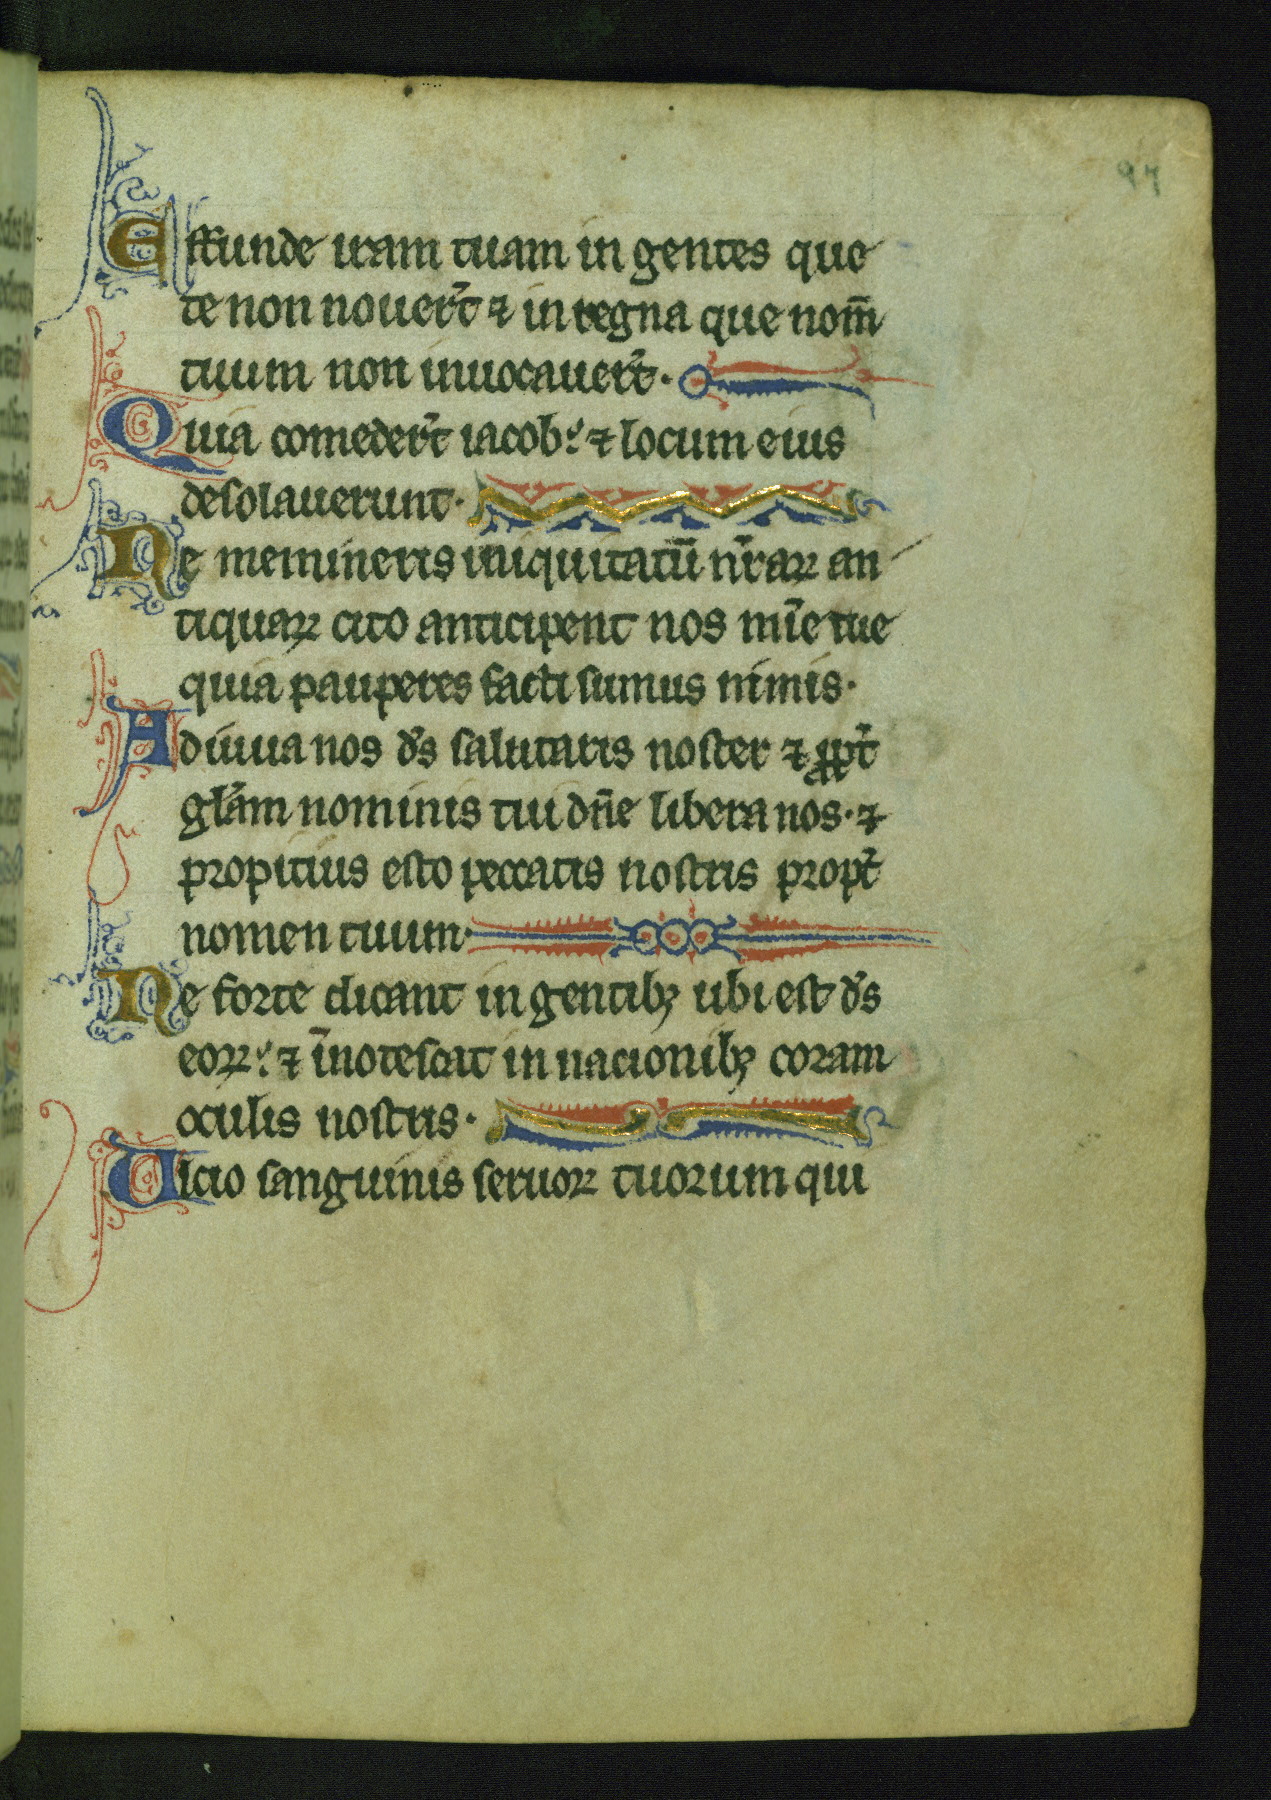 97
Effunde iram tuam in gentes que
te non nouer̄t ⁊ in regna que nom̄
tuum non inuocauer̄t.
Quia comeder̄t iacob: ⁊ locum eius
desolauerunt.
Ne memineris iniquitatū nr̄aꝝ an
tiquaꝝ cito anticipent nos mīe tue
quia pauperes facti sumus nimis.
Adiuua nos d̄s salutaris noster ⁊ ꝓpt̄
gl̄am nominis tui dn̄e libera nos. ⁊
propitius esto peccatis nostris propt̄
nomen tuum.
Ne forte dicant in gentibꝫ ubi est d̄s
eoꝝ: ⁊ īnotescat in nacionibꝫ coram
oculis nostris.
Vlcio sanguinis seruoꝝ tuorum qui